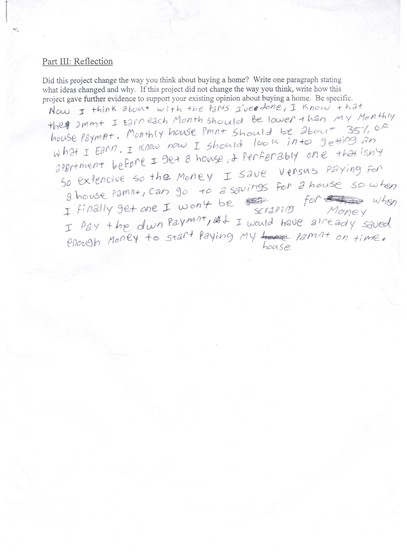 Part III: Reflection
Did this project change the way you think about buying a home? Write one paragraph stating
what ideas changed and why. If this project did not change the way you think, write how this
project gave further evidence to support your existing opinion about buying a home. Be specific.
Now I think about with the Parts I've done, I know that
the ammt I earn each Month should be lower then my Monthly
house Paymnt. Monthly house Pmnt should be about 35% of
what I Earn. I know now I should look into getting an
apartment before I get a house, & Perferably one that isn't
so extencive so the Money I save versus Paying for
a house Pamnt, can go to a savings for a house so when
I finally get one I won't be scraping for Money when
I Pay the dwn Paymnt, and I would have already saved
enough Money to start Paying My house Pamnt on time.